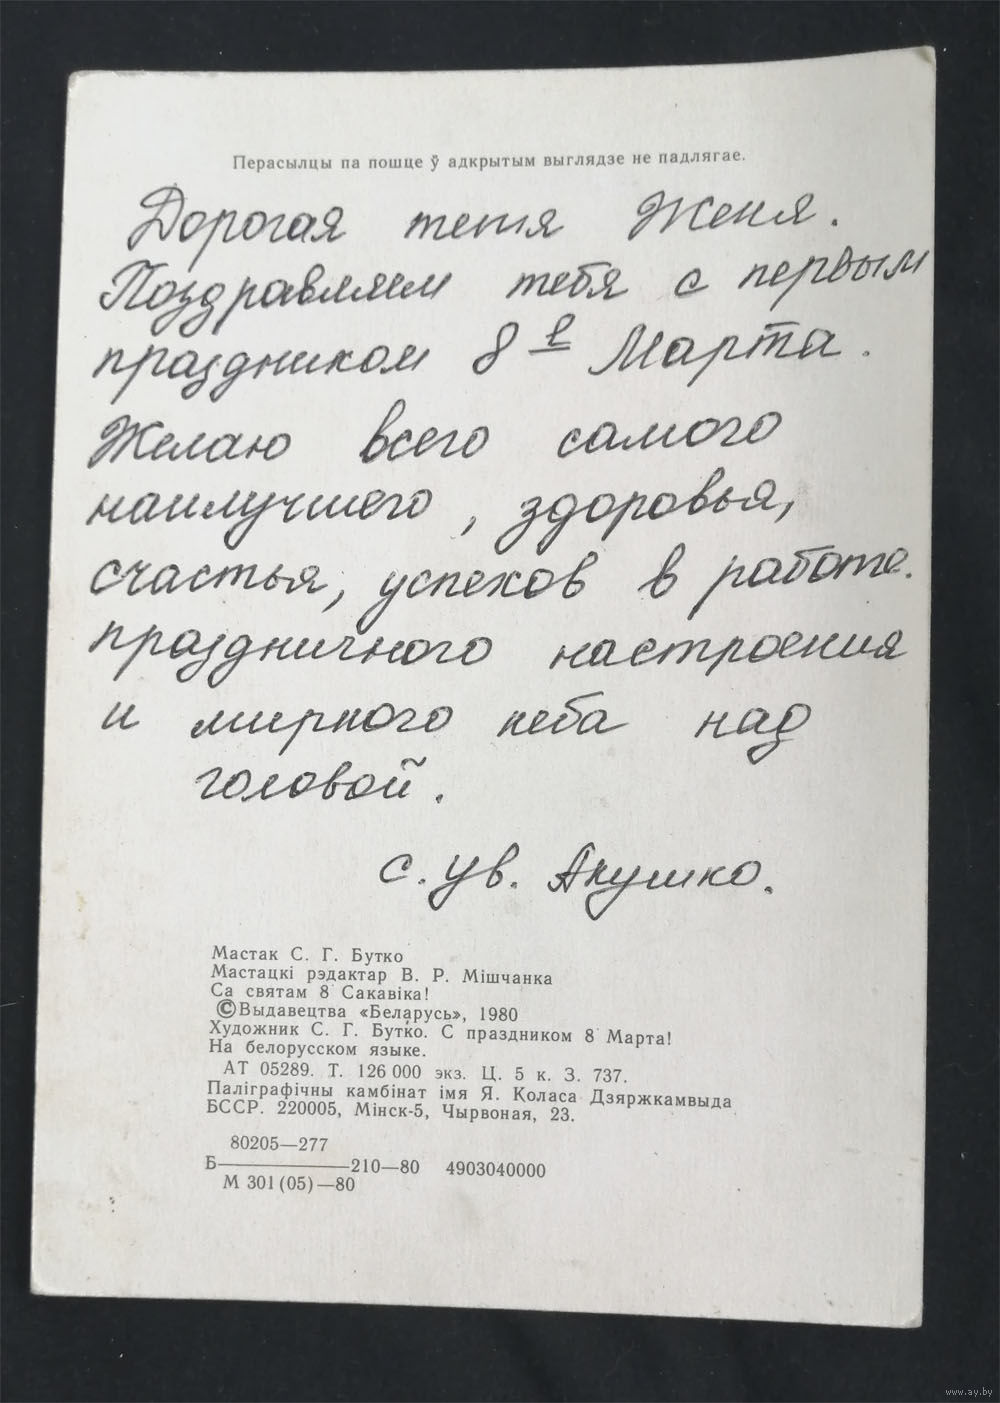 Перасылцы па пошце ў адкрытым выглядзе не падлягае.
Дорогая тетя Женя.
Поздравляем тебя с первым
праздником 8 е Марта.
Желаю всего самого
наилучшего, здоровья,
счастья, успехов в работе.
праздничного настроения
и мирного неба над
головой.
с. ув. Акушко.
Мастак С. Г. Бутко
Мастацкі рэдактар В. Р. Мішчанка
Са святам 8 Сакавіка!
©Выдавецтва «Беларусь», 1980
Художник С. Г. Бутко. С праздником 8 Марта!
На белорусском языке.
АТ 05289. Т. 126 000 экз. Ц. 5 к. З. 737.
Паліграфічны камбінат імя Я. Коласа Дзяржкамвыда
БССР. 220005, Мінск-5, Чырвоная, 23.
80205—277
Б————210—80 4903040000
М 301(05)—80
www.ay.by